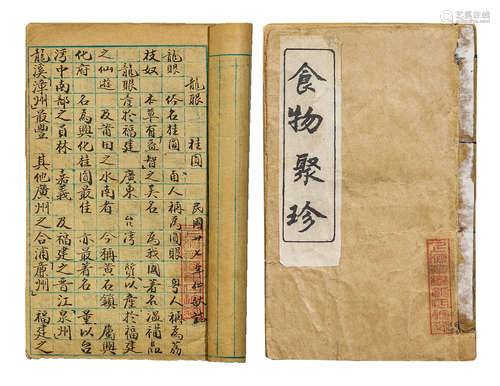 龍眼 桂圓 民國廿七年仲秋誌
龍眼 俗名桂圓 甬人稱為圓眼 粵人稱為荔
枝奴 本草有益智之美名 為我國著名溫補品
龍眼產於福建 廣東 台灣 質以產於福建
之仙遊 及莆田之水南者 今稱黃石鎮 屬興
化府 名為興化桂圓最佳 亦最著名 量以台
灣中南部之員林 嘉義 及福建之晋江泉州
龍溪漳州最豐 其他廣州之合浦廉州 福建之
食物聚珍